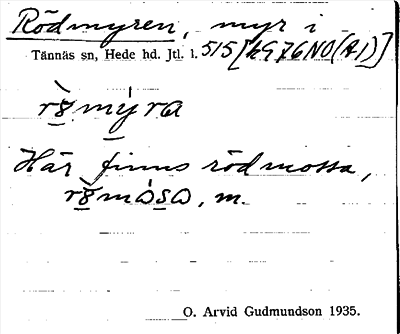 Rödmyren, myr i
Tännäs sn, Hede hd. Jtl. l. 515 [kG76NO(A1)]
rø̀myra
Här finns rödmossa,
m.
O. Arvid Gudmundson 1935.